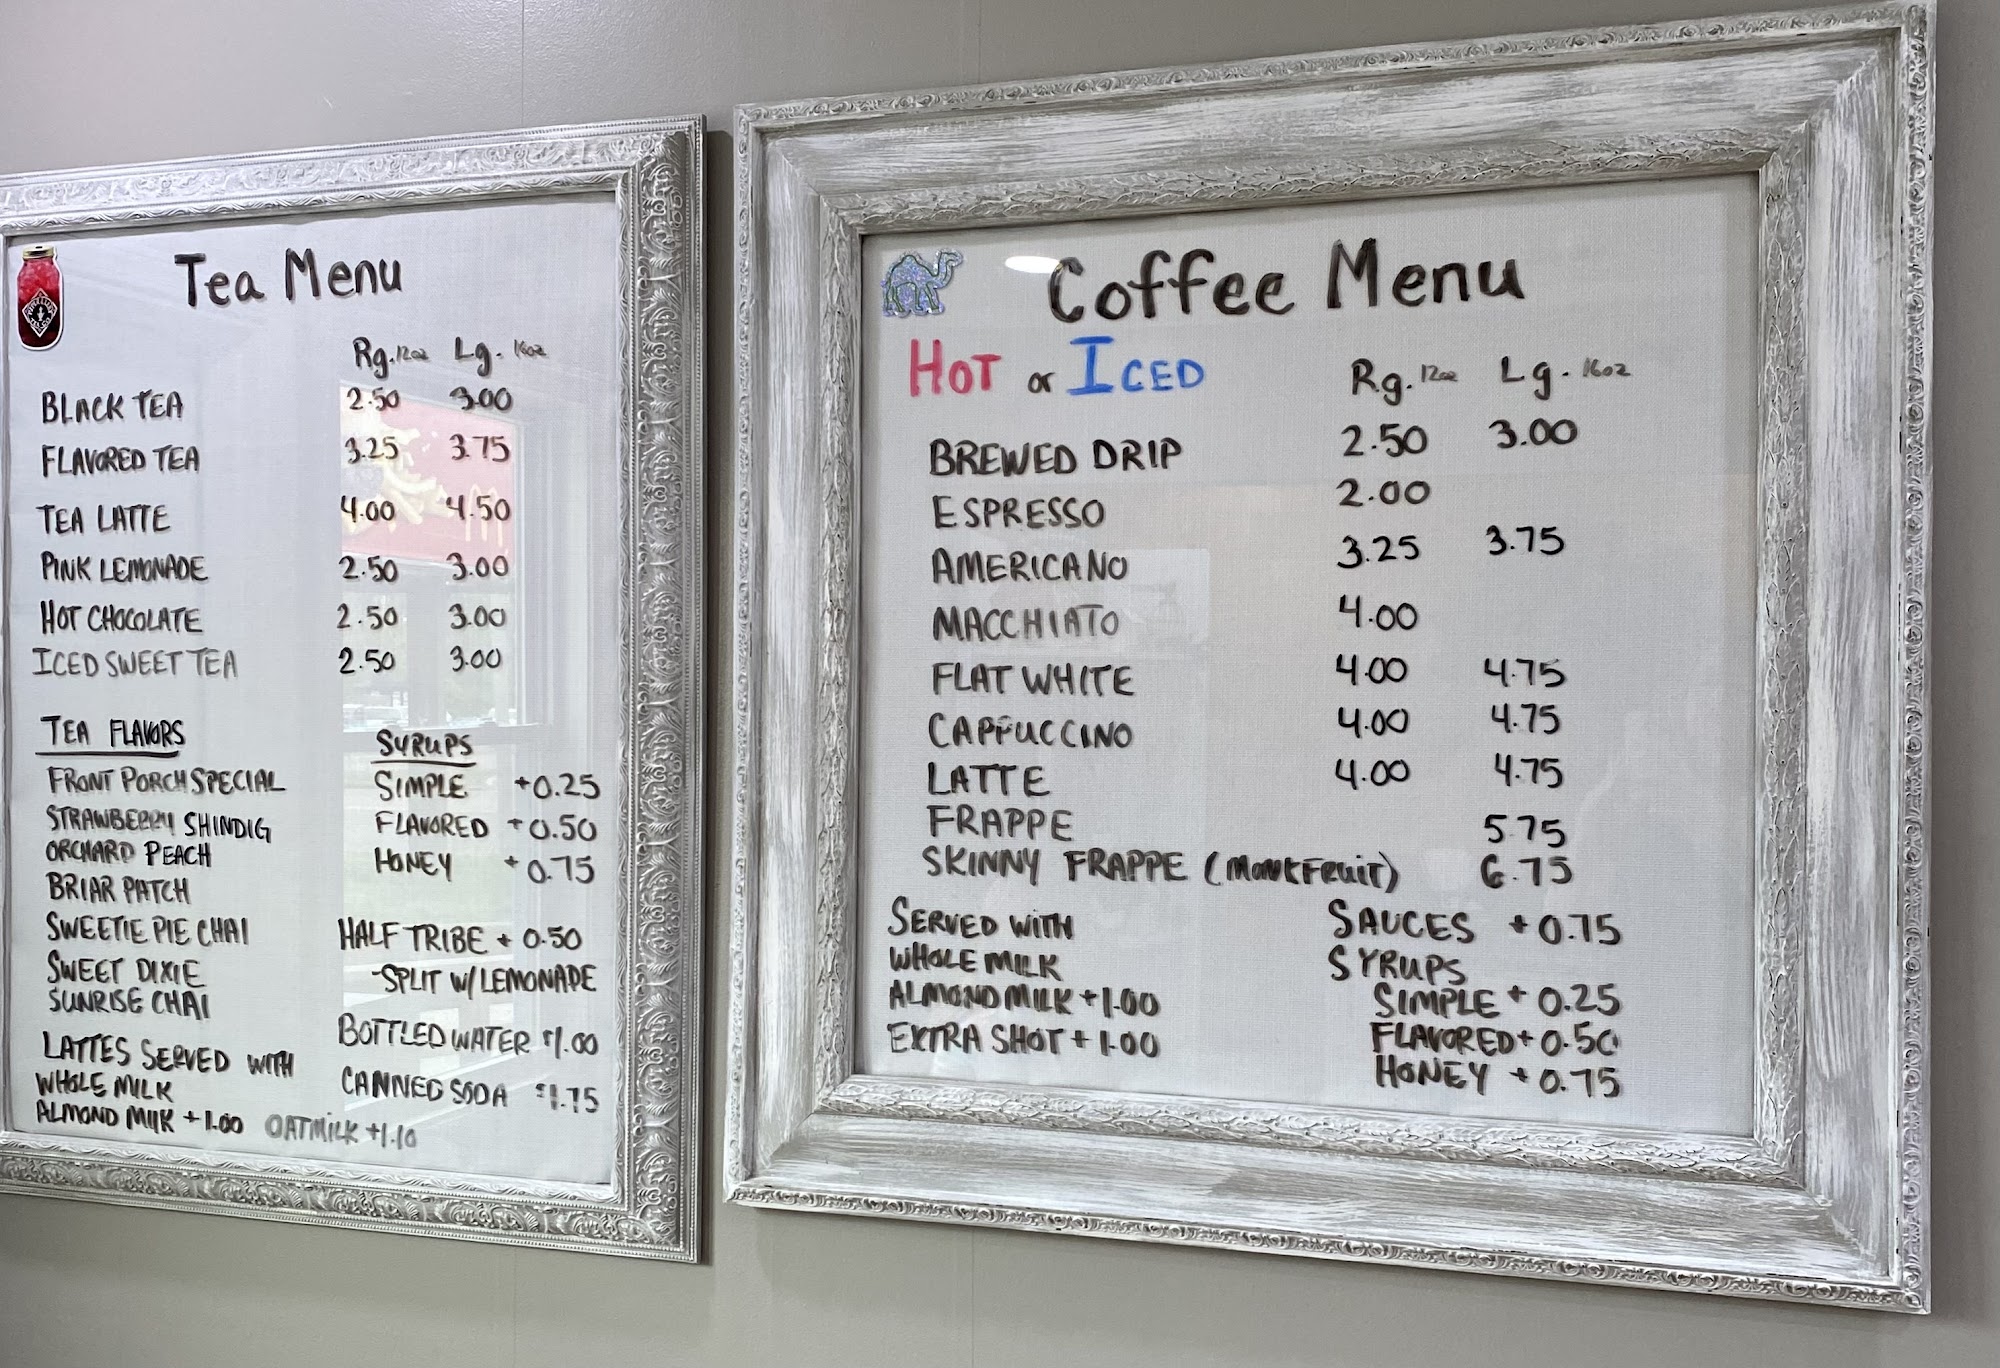 Tea Menu
Rg. 12oz Lg. 16oz
BLACK TEA 2.50 3.00
FLAVORED TEA 3.25 3.75
TEA LATTE 4.00 4.50
PINK LEMONADE 2.50 3.00
HOT CHOCOLATE 2.50 3.00
ICED SWEET TEA 2.50 3.00
TEA FLAVORS
FRONT PORCH SPECIAL
STRAWBERRY SHINDIG
ORCHARD PEACH
BRIAR PATCH
SWEETIE PIE CHAI
SWEET DIXIE
SUNRISE CHAI
LATTES SERVED WITH
WHOLE MILK
ALMOND MILK +1.00 OATMILK +1.10
SYRUPS
SIMPLE +0.25
FLAVORED +0.50
HONEY +0.75
HALF TRIBE + 0.50
-SPLIT W/LEMONADE
BOTTLED WATER $1.00
CANNED SODA $1.75
Coffee Menu
HOT or ICED Rg. 12oz Lg. 16oz
BREWED DRIP 2.50 3.00
ESPRESSO 2.00
AMERICANO 3.25 3.75
MACCHIATO 4.00
FLAT WHITE 4.00 4.75
CAPPUCCINO 4.00 4.75
LATTE 4.00 4.75
FRAPPE 5.75
SKINNY FRAPPE (MONKFRUIT) 6.75
SERVED WITH
WHOLE MILK
ALMOND MILK +1.00
EXTRA SHOT +1.00
SAUCES +0.75
SYRUPS
SIMPLE + 0.25
FLAVORED + 0.50
HONEY + 0.75